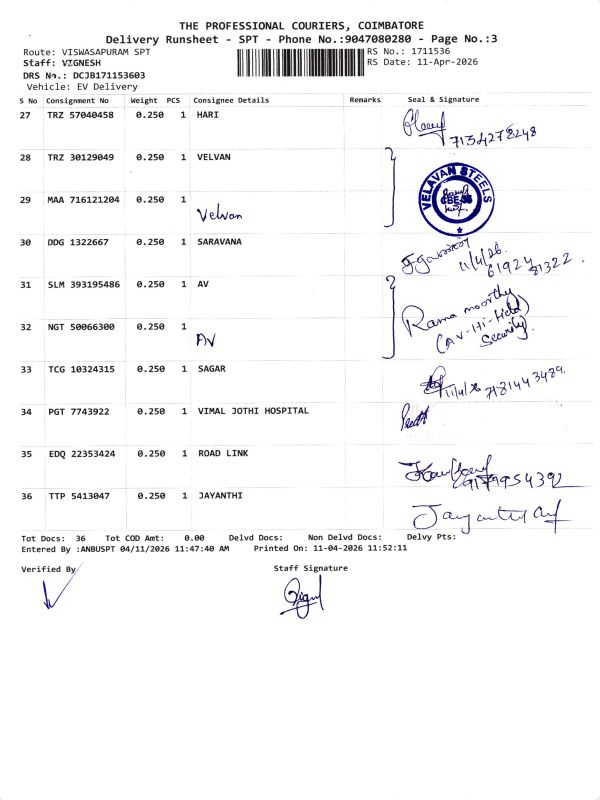 THE PROFESSIONAL COURIERS, COIMBATORE
Delivery Runsheet - SPT - Phone No.:9047080280 - Page No.:3
Route: VISWASAPURAM SPT
RS No.: 1711536
Staff: VIGNESH
RS Date: 11-Apr-2026
DRS No.: DCJB171153603
Vehicle: EV Delivery
S No Consignment No Weight PCS Consignee Details Remarks Seal & Signature
27 TRZ 57040458 0.250 1 HARI
7134278248
28 TRZ 30129049 0.250 1 VELVAN
VELAVAN STEELS
29 MAA 716121204 0.250 1
Velvan
30 DDG 1322667 0.250 1 SARAVANA
11/4/26.
61924 81322.
31 SLM 393195486 0.250 1 AV
Rama moorthy
(AV-Hi-Held)
Security.
32 NGT 50066300 0.250 1
AV
33 TCG 10324315 0.250 1 SAGAR
11/4/26
34 PGT 7743922 0.250 1 VIMAL JOTHI HOSPITAL
35 EDQ 22353424 0.250 1 ROAD LINK
9179954392
36 TTP 5413047 0.250 1 JAYANTHI
Tot Docs: 36 Tot COD Amt: 0.00 Delvd Docs: Non Delvd Docs: Delvy Pts:
Entered By :ANBUSPT 04/11/2026 11:47:40 AM Printed On: 11-04-2026 11:52:11
Verified By
Staff Signature